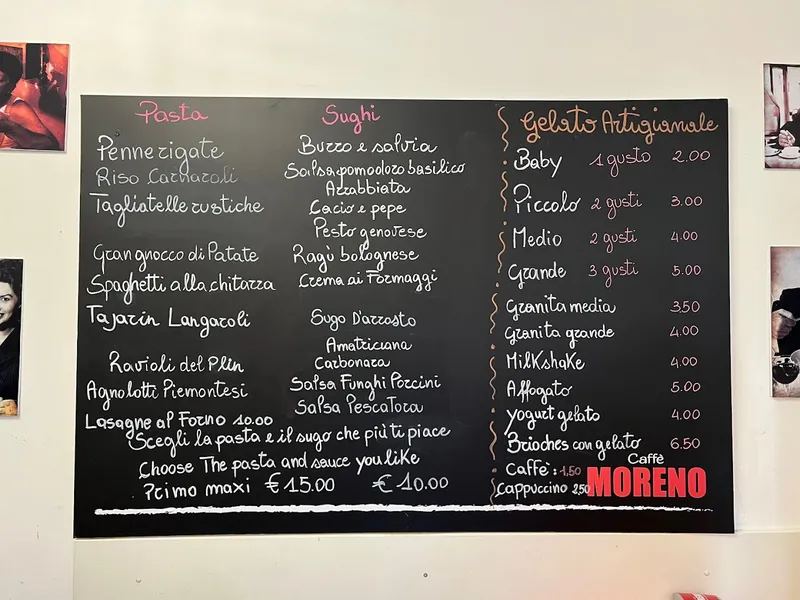 Pasta
Penne rigate
Riso Carnaroli
Tagliatelle rustiche
Gran gnocco di Patate
Spaghetti alla chitarra
Tajarin Langaroli
Ravioli del Plin
Agnolotti Piemontesi
Lasagne al Forno 10.00
Sughi
Burro e salvia
Salsa pomodoro basilico
Arrabbiata
Cacio e pepe
Pesto genovese
Ragù bolognese
Crema ai Formaggi
Sugo D'arrosto
Amatriciana
Carbonara
Salsa Funghi Porcini
Salsa Pescatora
Scegli la pasta e il sugo che più ti piace
Choose The pasta and sauce you like
Primo maxi €15.00 €10.00
Gelato Artigianale
Baby 1 gusto 2.00
Piccolo 2 gusti 3.00
Medio 2 gusti 4.00
Grande 3 gusti 5.00
Granita media 3.50
Granita grande 4.00
Milkshake 4.00
Affogato 5.00
yogurt gelato 4.00
Brioches con gelato 6.50
Caffè: 1.50
Cappuccino 2.50
Caffè
MORENO